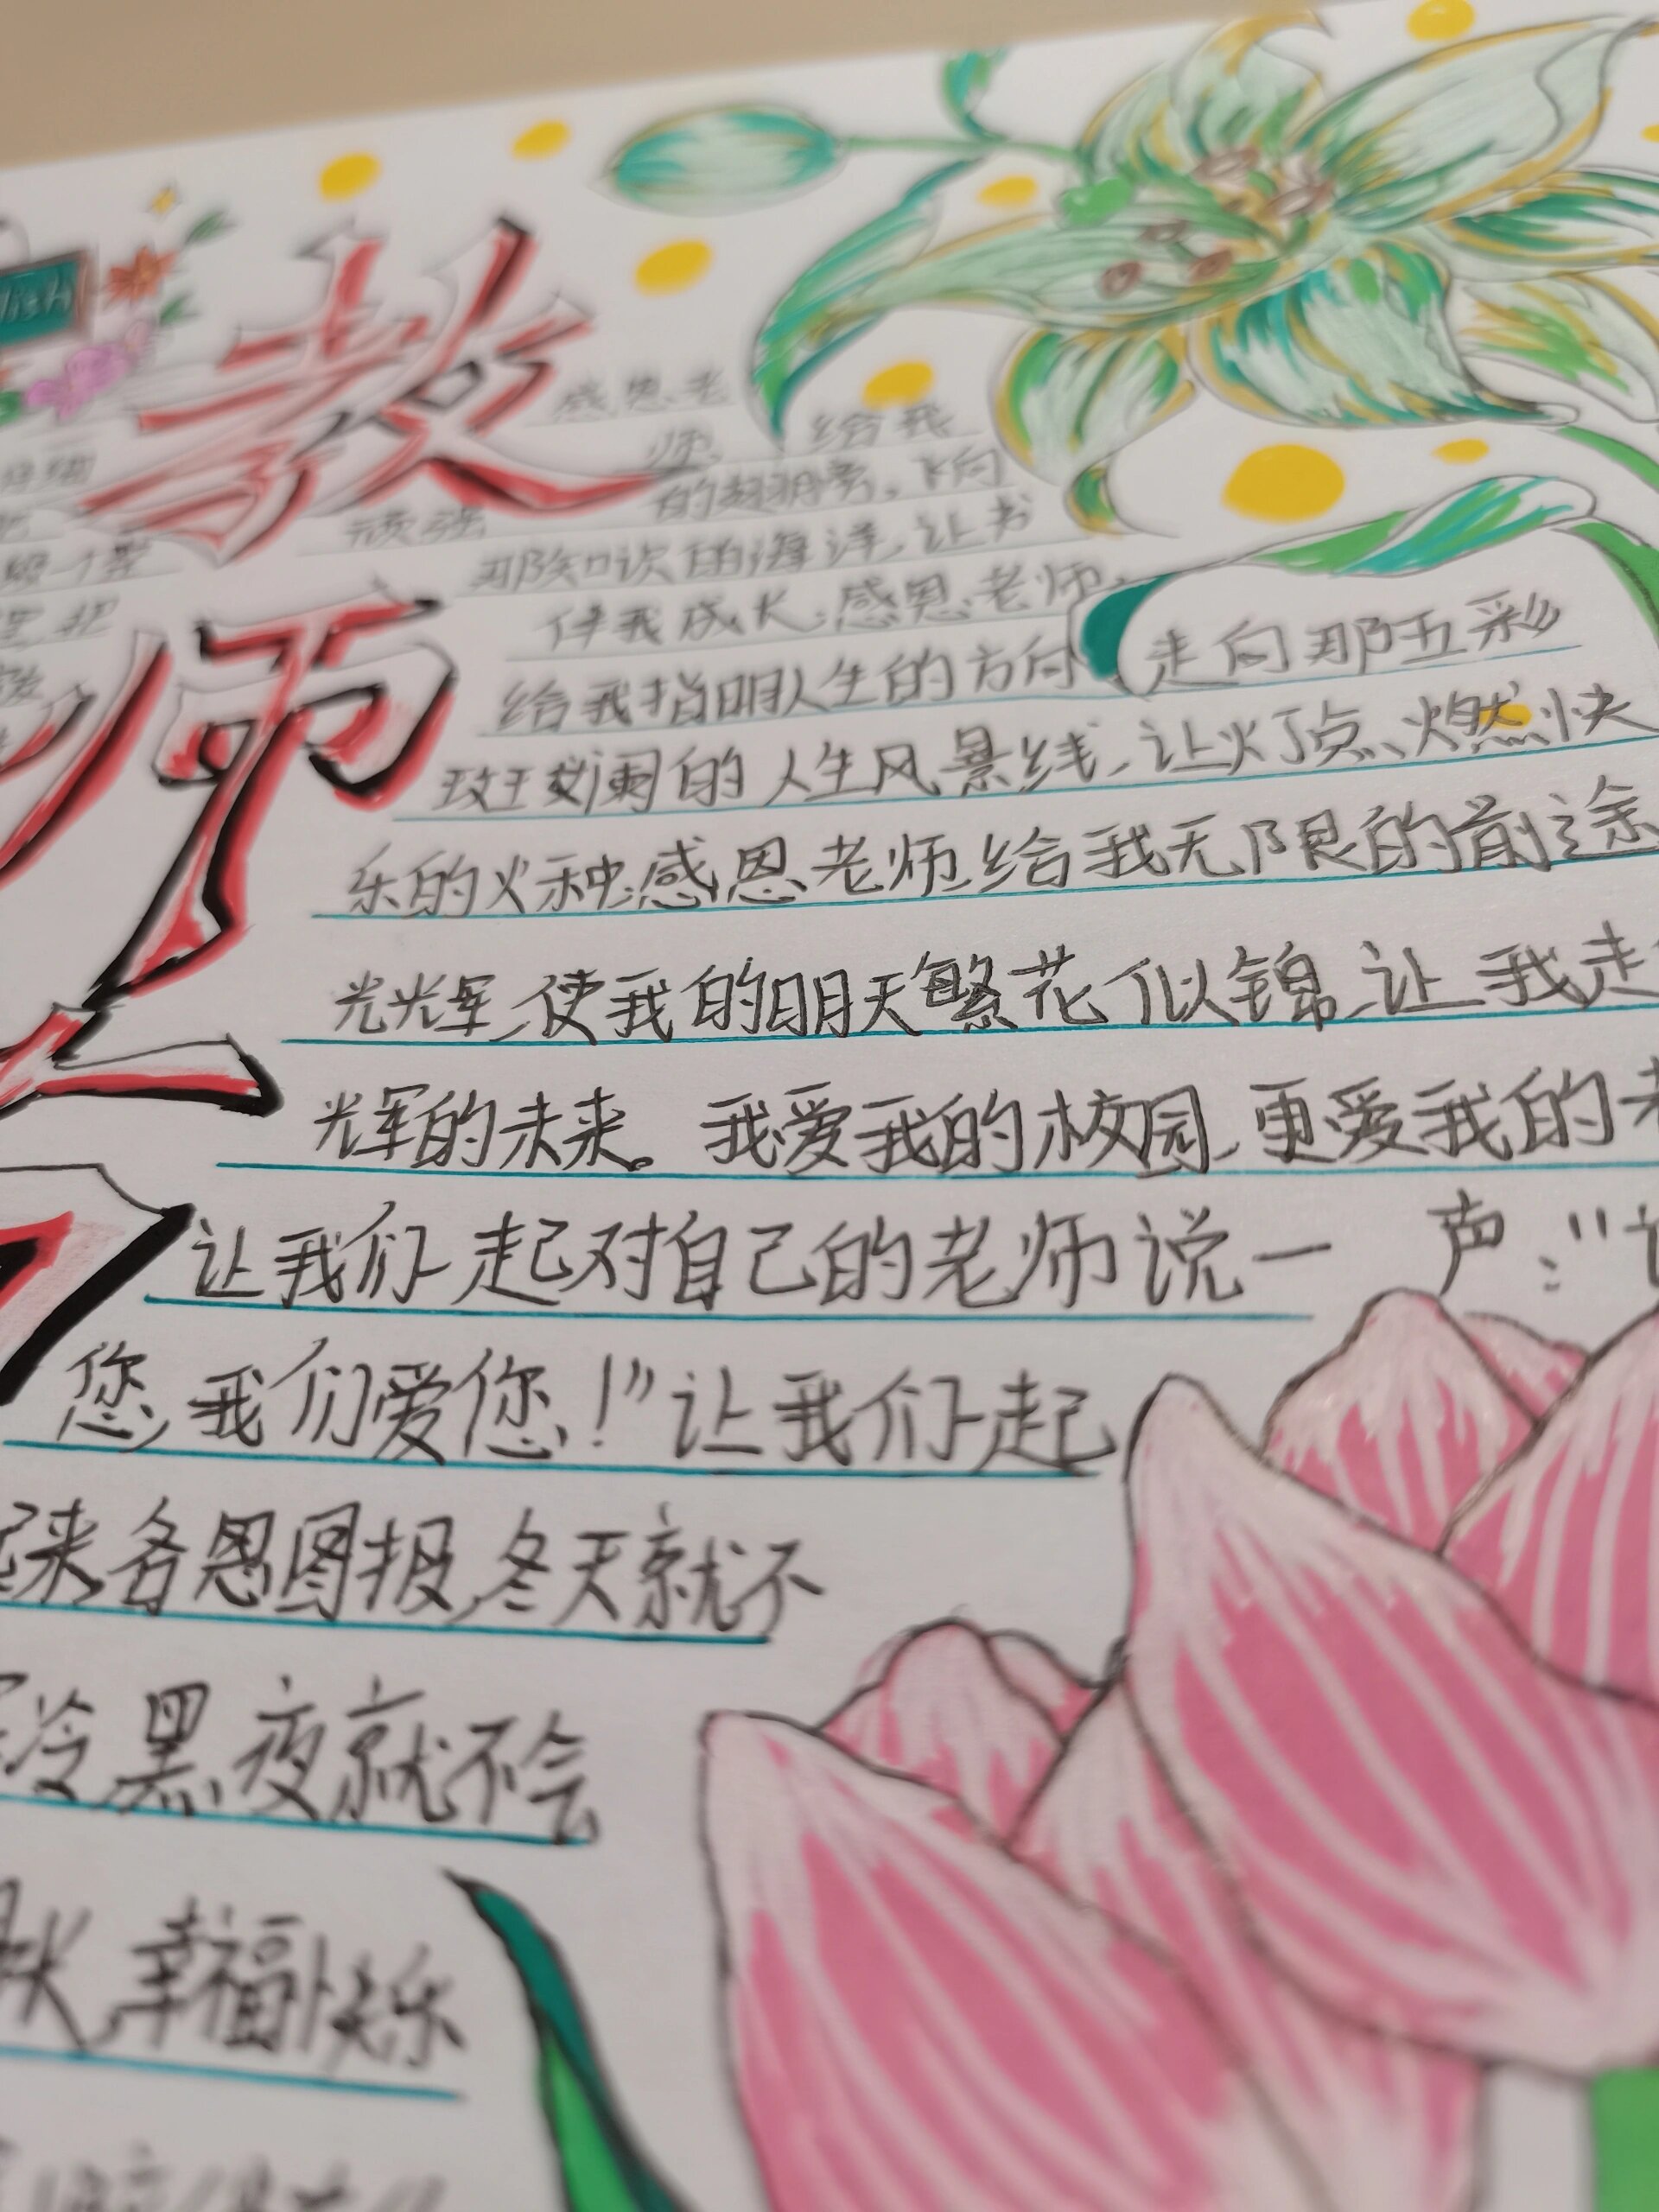 lish
教
师
感恩老
师 给我
顽强 的翅膀，飞向
那知识的海洋，让书
伴我成长；感恩老师，
给我指明人生的方向 走向那五彩
斑斓阑的人生风景线，让灯点、燃快
乐的火种；感恩老师，给我无限的前途
光光辉，使我的明天繁花似锦，让我走
光辉的未来。我爱我的校园，更爱我的
让我们一起对自己的老师说一 声："
您，我们爱您！"让我们一起
来各恩图报，冬天就不
冷，黑夜就不会
幸福快乐